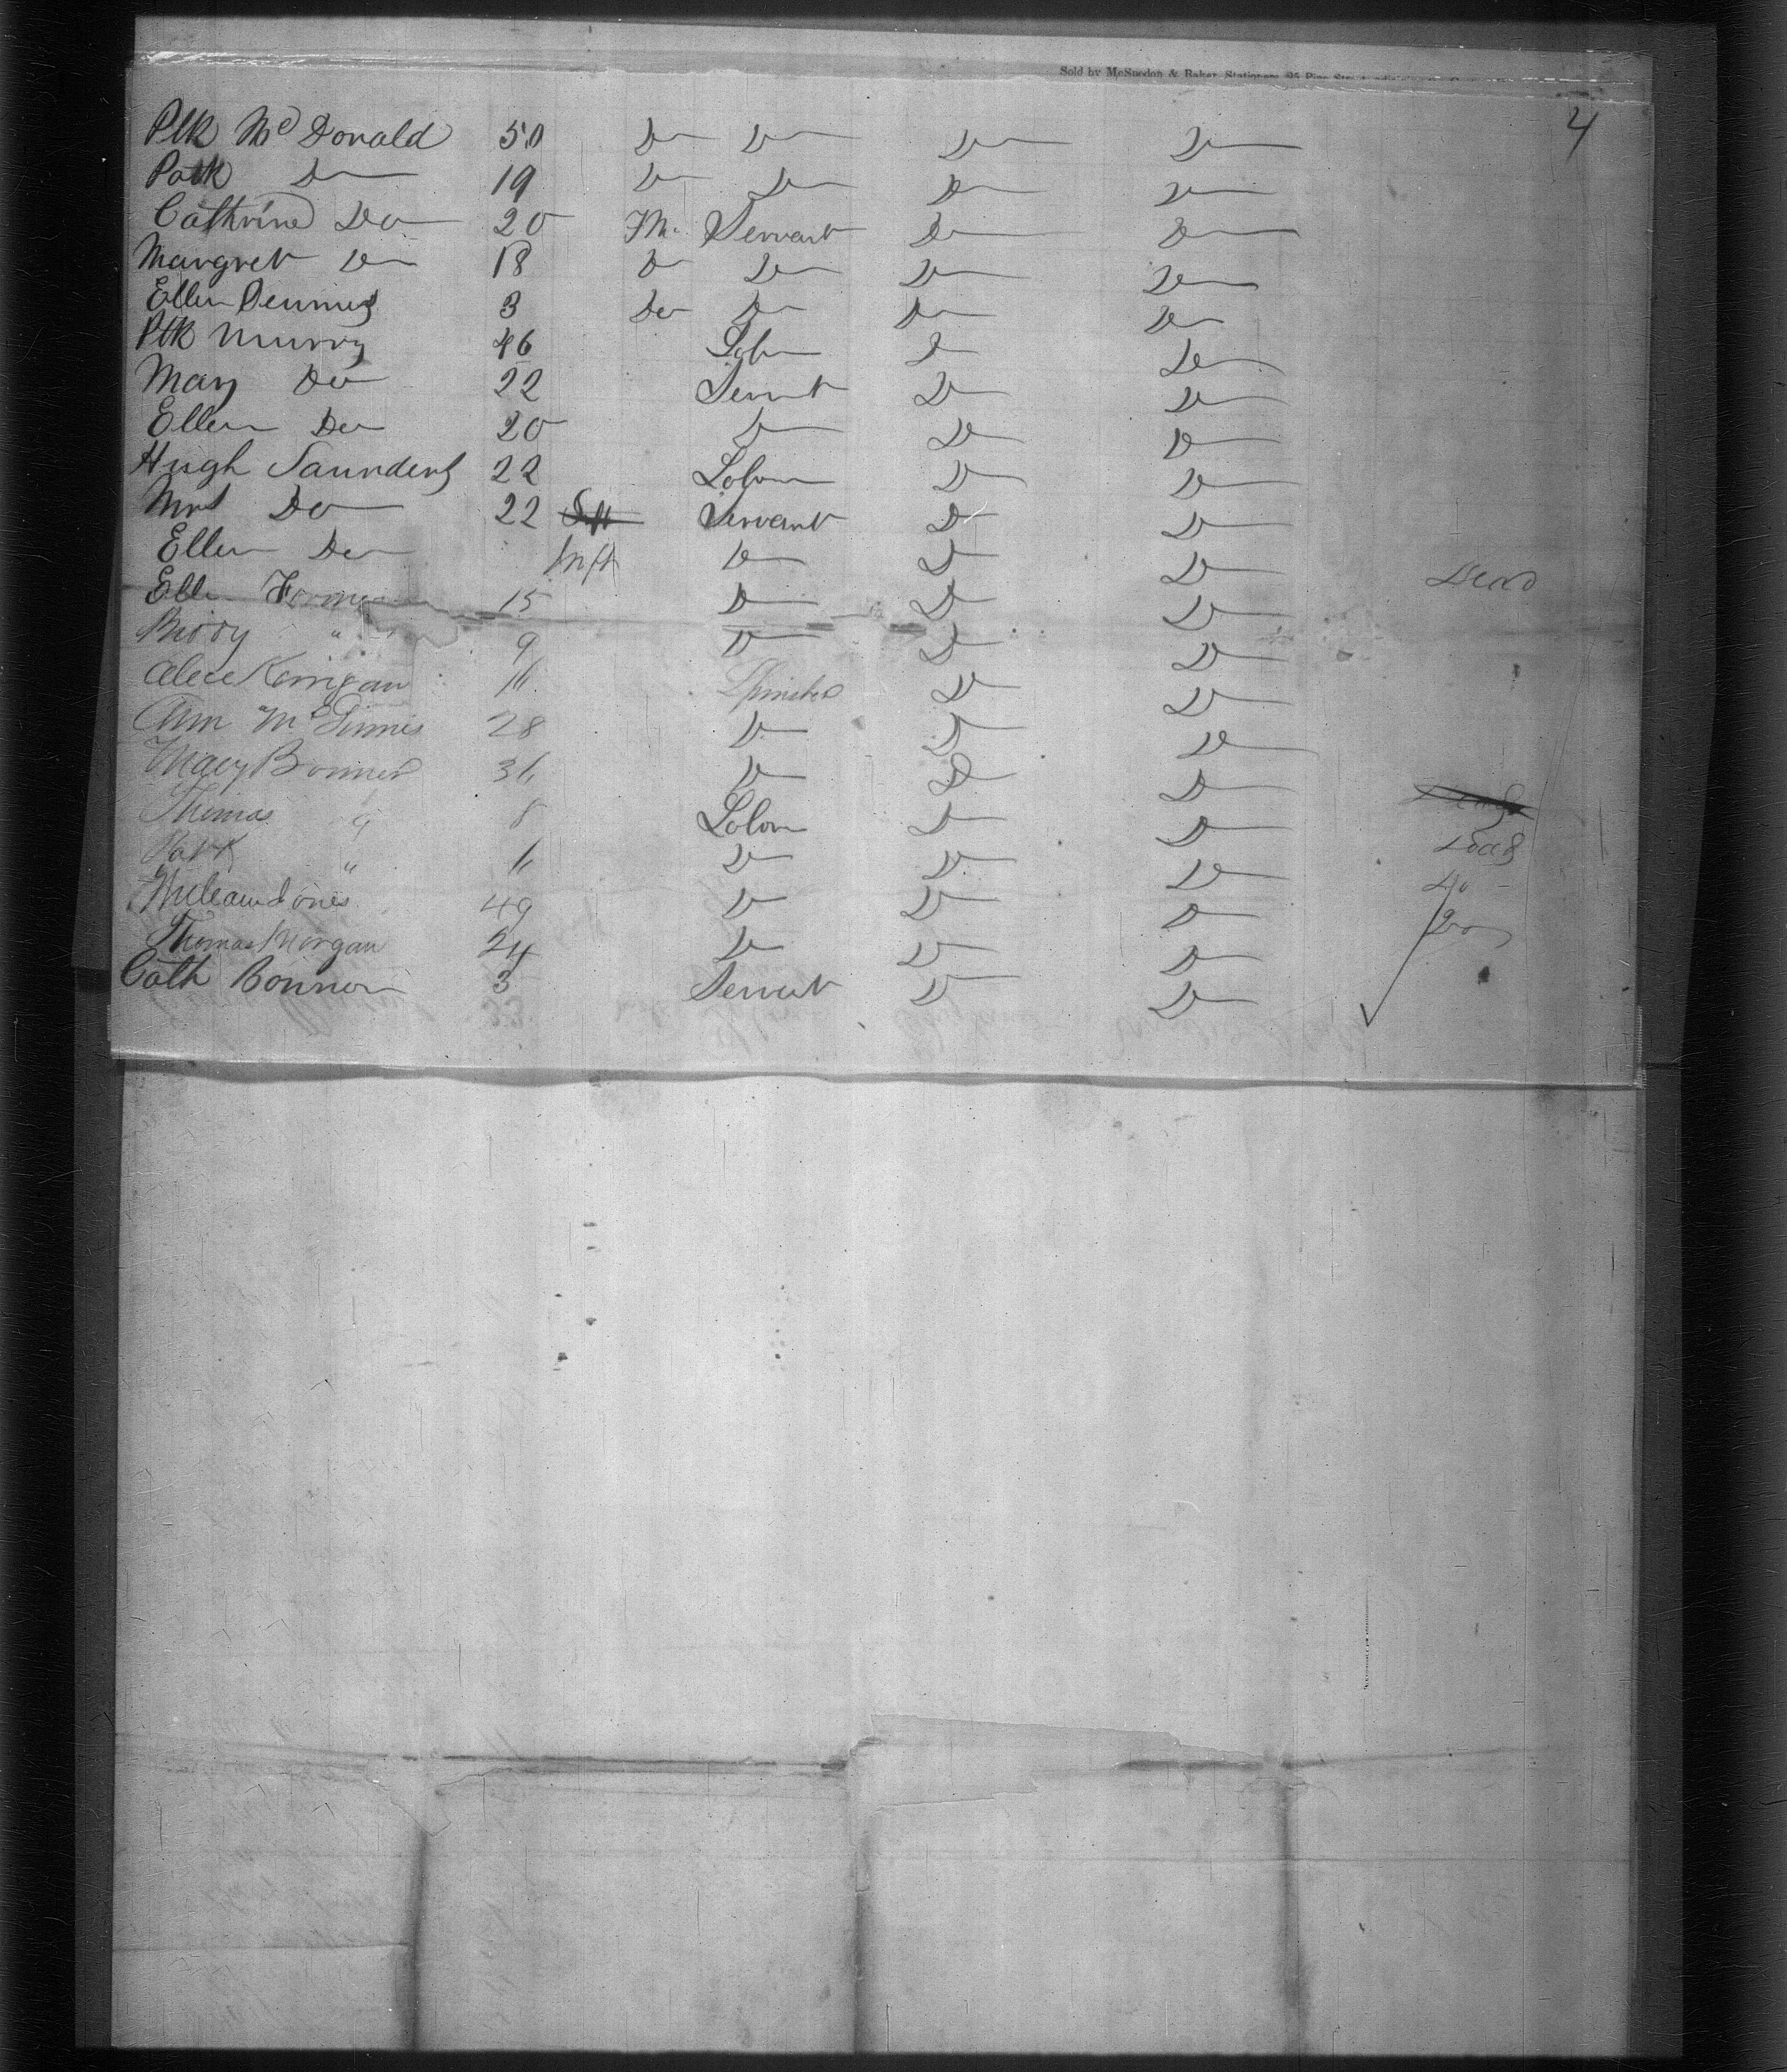 Sold by McSpedon & Baker, Stationers, 25 Pine Street
4
Ptk McDonald 50 Do Do Do Do
Patk Do 19 Do Do Do Do
Cathrine Do 20 Fm. Servant Do Do
Margret Do 18 Do Do Do Do
Ellen Dennis 3 Do Do Do Do
Ptk Murry 46 Labr Do Do
Mary Do 22 Servnt Do Do
Ellen Do 20 Do Do Do
Hugh Saunders 22 Labour Do Do
Mrs Do 22 Servant Do Do
Ellen Do Inft Do Do Do Dead
Ellen 15 Do Do Do
Biddy " 9 Do Do Do
Alece Kerrigan 16 Spinster Do Do
Ann McGinnis 28 Do Do Do
Mary Bonner 36 Do Do Do
Thomas " 8 Labour Do Do
Patk " 6 Do Do Do
Jones 49 Do Do Do Do
Thomas Morgan 24 Do Do Do Do
Cath Bonner 3 Servant Do Do